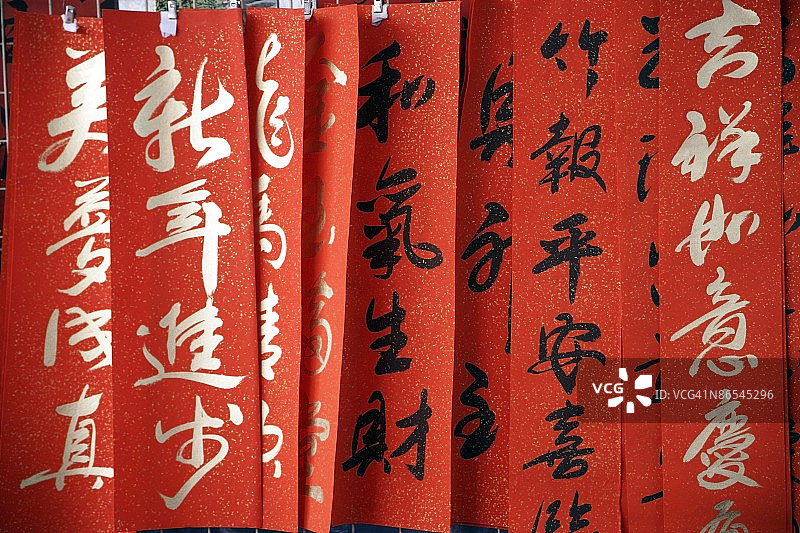 美夢成真
新年進步
龍馬精
金玉滿堂
和氣生財
竹報平安喜臨
吉祥如意慶
VCG
VCG41N86545296